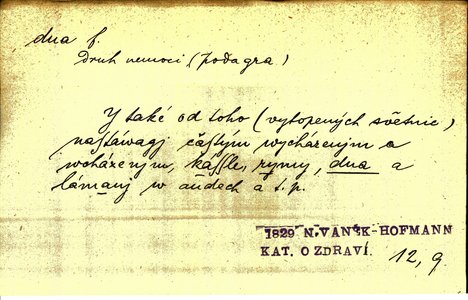 dna f.
Druh nemoci (podagra)
Y také od toho (vytopených světnic)
nastáwagj částým wycházenjm a
wcházenjm, kassle, rýmy, dna a
lámanj w audech a t.p.
1829 N.VANĚK-HOFMANN
KAT. O ZDRAVÍ. 12, 9.